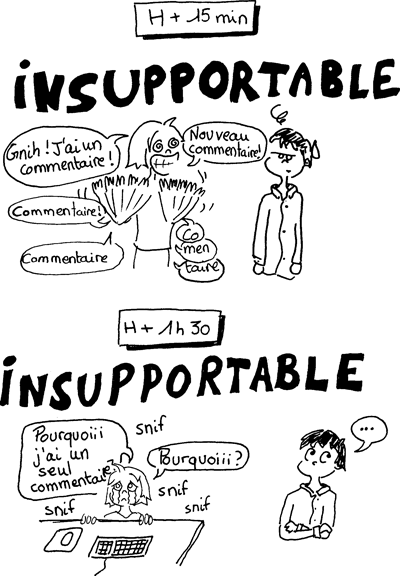 H + 15 min
INSUPPORTABLE
Gnih ! J'ai un
commentaire !
Nouveau
commentaire!
Commentaire!
Commentaire
Co
men
taire
H + 1h30
INSUPPORTABLE
Pourquoiii
j'ai un
seul
commentaire
snif
Pourquoiii ?
snif
snif
snif
...